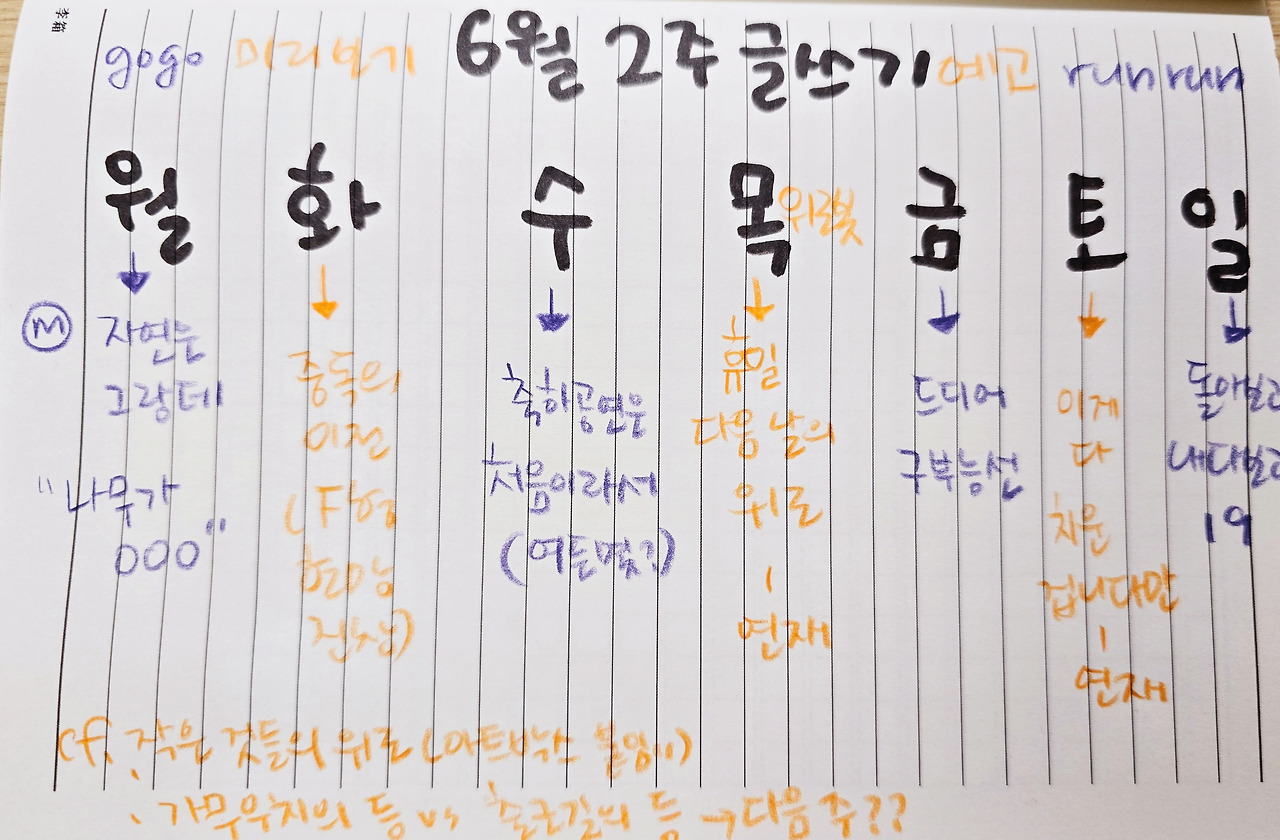 gogo 미리보기 6월 2주 글쓰기 예고 run run
월 화 수 목 위로봇 금 토 일
ⓜ 자연은
그랑테
"나무가
000"
중독의
이전
축하공연은
처음이라서
(여튼몇?)
휴일
다음 날의
위로
-
연재
드디어
구부능선
이게
다
치운
겁니다만
-
연재
돌아보고
내다보고
19
cf. 작은 것들의 위로 (아트박스 붙임")
. 가무우치의 등 vs 출근길의 등 → 다음 주??